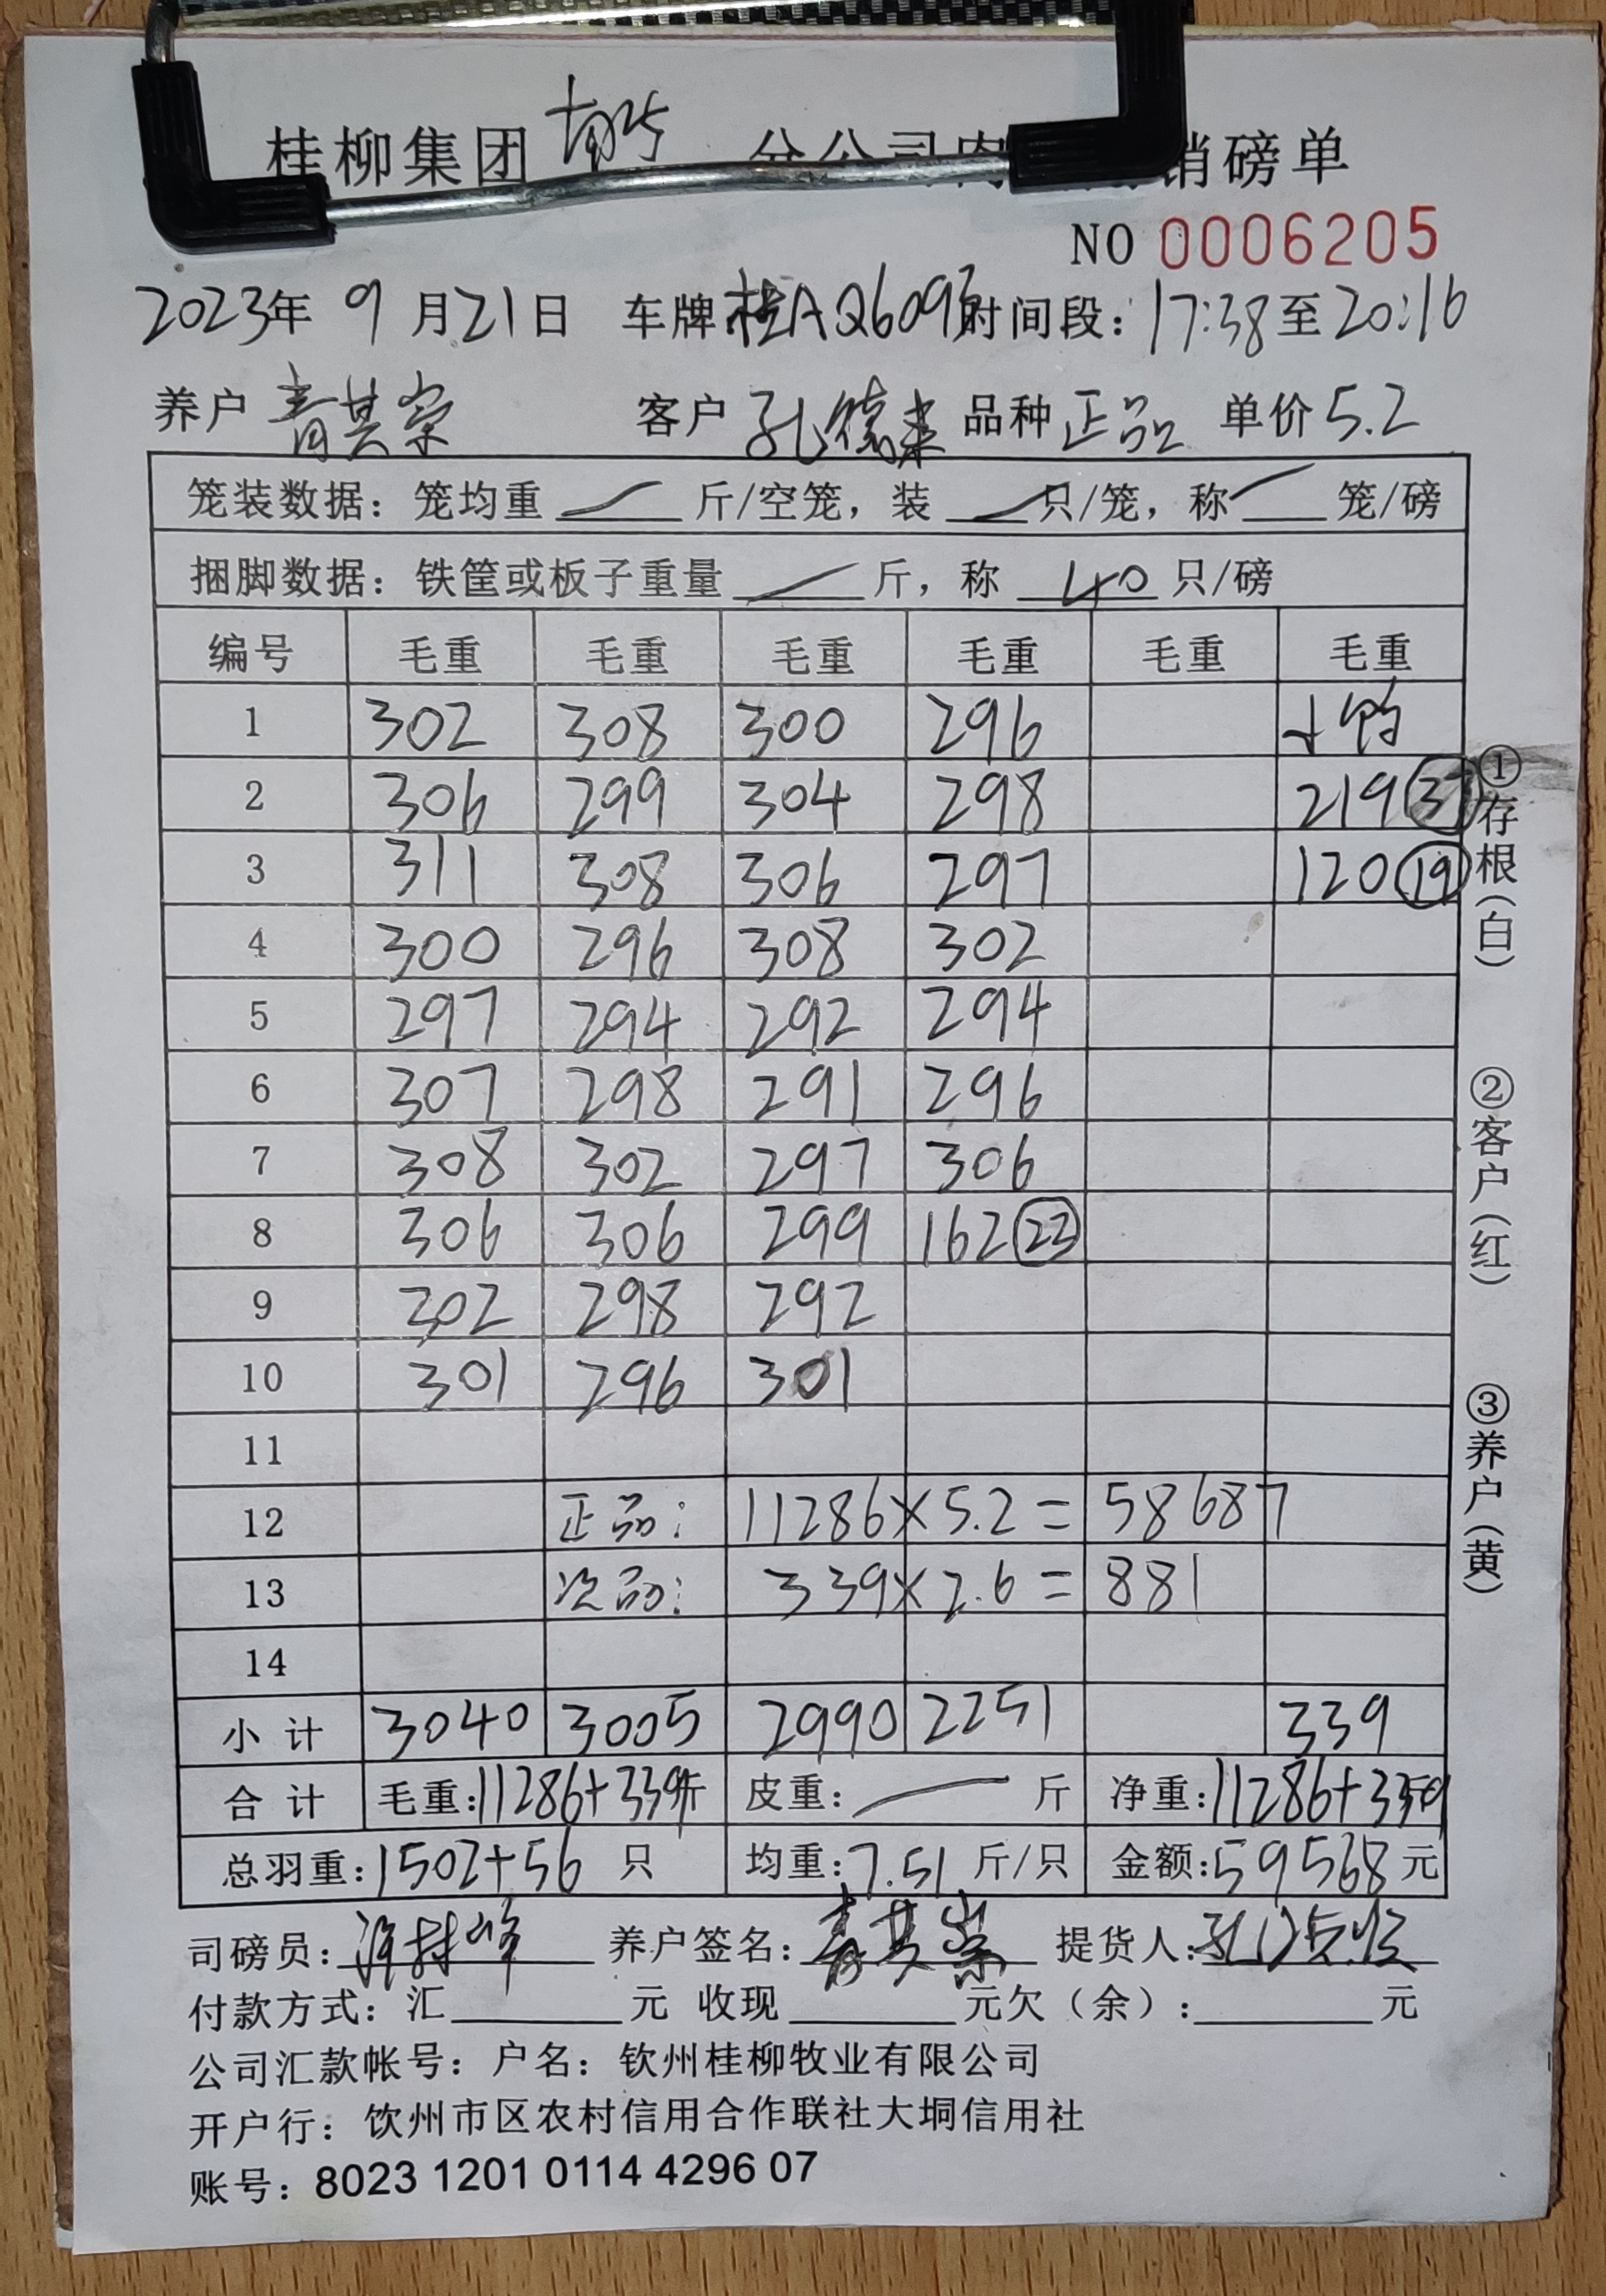 桂柳集团 分公司肉 销磅单
NO 0006205
2023年 9月21日 车牌:桂AQ6093 时间段:17:38至20:16
养户 青其崇 客户 孔德来 品种 正品 单价 5.2
笼装数据:笼均重 — 斤/空笼,装 — 只/笼,称 — 笼/磅
捆脚数据:铁筐或板子重量 — 斤,称 40 只/磅
编号 毛重 毛重 毛重 毛重 毛重 毛重
1 302 308 300 296 小鸭
2 306 299 304 298 219 (37)
3 311 308 306 297 120 (19)
4 300 296 308 302
5 297 294 292 294
6 307 298 291 296
7 308 302 297 306
8 306 306 299 162 (23)
9 302 298 292
10 301 296 301
11
12 正品: 11286×5.2= 58687
13 次品: 339×2.6= 881
14
小计 3040 3005 2990 2251 339
合计 毛重:11286+339斤 皮重: — 斤 净重:11286+339
总羽重:1502+56 只 均重:7.51 斤/只 金额:59568元
司磅员: 养户签名:青其崇 提货人:
付款方式:汇 元 收现 元欠(余): 元
公司汇款帐号:户名:钦州桂柳牧业有限公司
开户行:钦州市区农村信用合作联社大垌信用社
账号:8023 1201 0114 4296 07
①存根(白)
②客户(红)
③养户(黄)